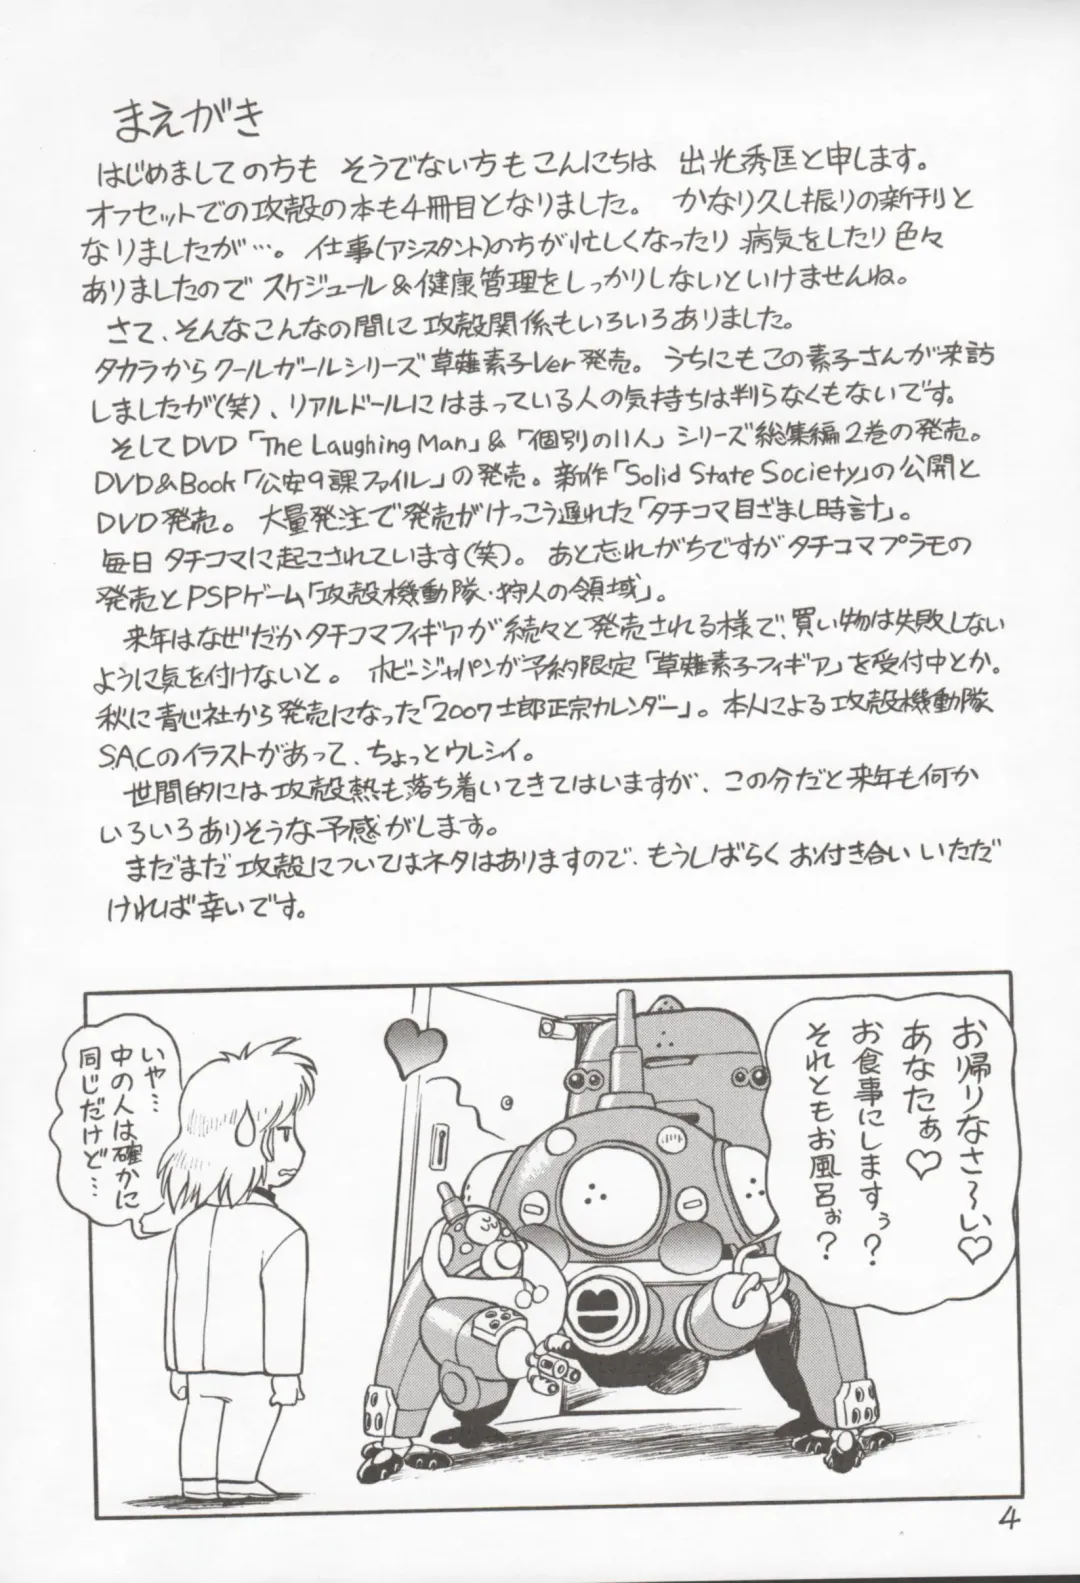 まえがき
はじめましての方も そうでない方もこんにちは 出光秀匡と申します。
オフセットでの攻殻の本も4冊目となりました。 かなり久し振りの新刊と
なりましたが…。 仕事(アシスタント)の方が忙しくなったり 病気をしたり色々
ありましたので スケジュール&健康管理をしっかりしないといけませんね。
さて、そんなこんなの間に 攻殻関係もいろいろありました。
タカラからクールガールシリーズ草薙素子Ver発売。 うちにもこの素子さんが来訪
しましたが(笑)、リアルドールにはまっている人の気持ちは判らなくもないです。
そしてDVD「The Laughing Man」&「個別の11人」シリーズ総集編2巻の発売。
DVD&Book「公安9課ファイル」の発売。新作「Solid State Society」の公開と
DVD発売。 大量発注で発売がけっこう遅れた「タチコマ目ざまし時計」。
毎日 タチコマに起こされています(笑)。 あと忘れがちですがタチコマプラモの
発売とPSPゲーム「攻殻機動隊・狩人の領域」。
来年はなぜだかタチコマフィギアが続々と発売される様で、買い物は失敗しない
ように気を付けないと。 ホビージャパンが予約限定「草薙素子フィギア」を受付中とか。
秋に青心社から発売になった「2007士郎正宗カレンダー」。本人による攻殻機動隊
S.A.Cのイラストがあって、ちょっとウレシイ。
世間的には攻殻熱も落ち着いてきてはいますが、この分だと来年も何か
いろいろありそうな予感がします。
まだまだ攻殻についてはネタはありますので、もうしばらくお付き合いいただだ
ければ幸いです。
お帰りなさ〜い♡
あなたぁ♡
お食事にしますぅ?
それともお風呂ぉ?
いや…
中の人は確かに
同じだけど…
4